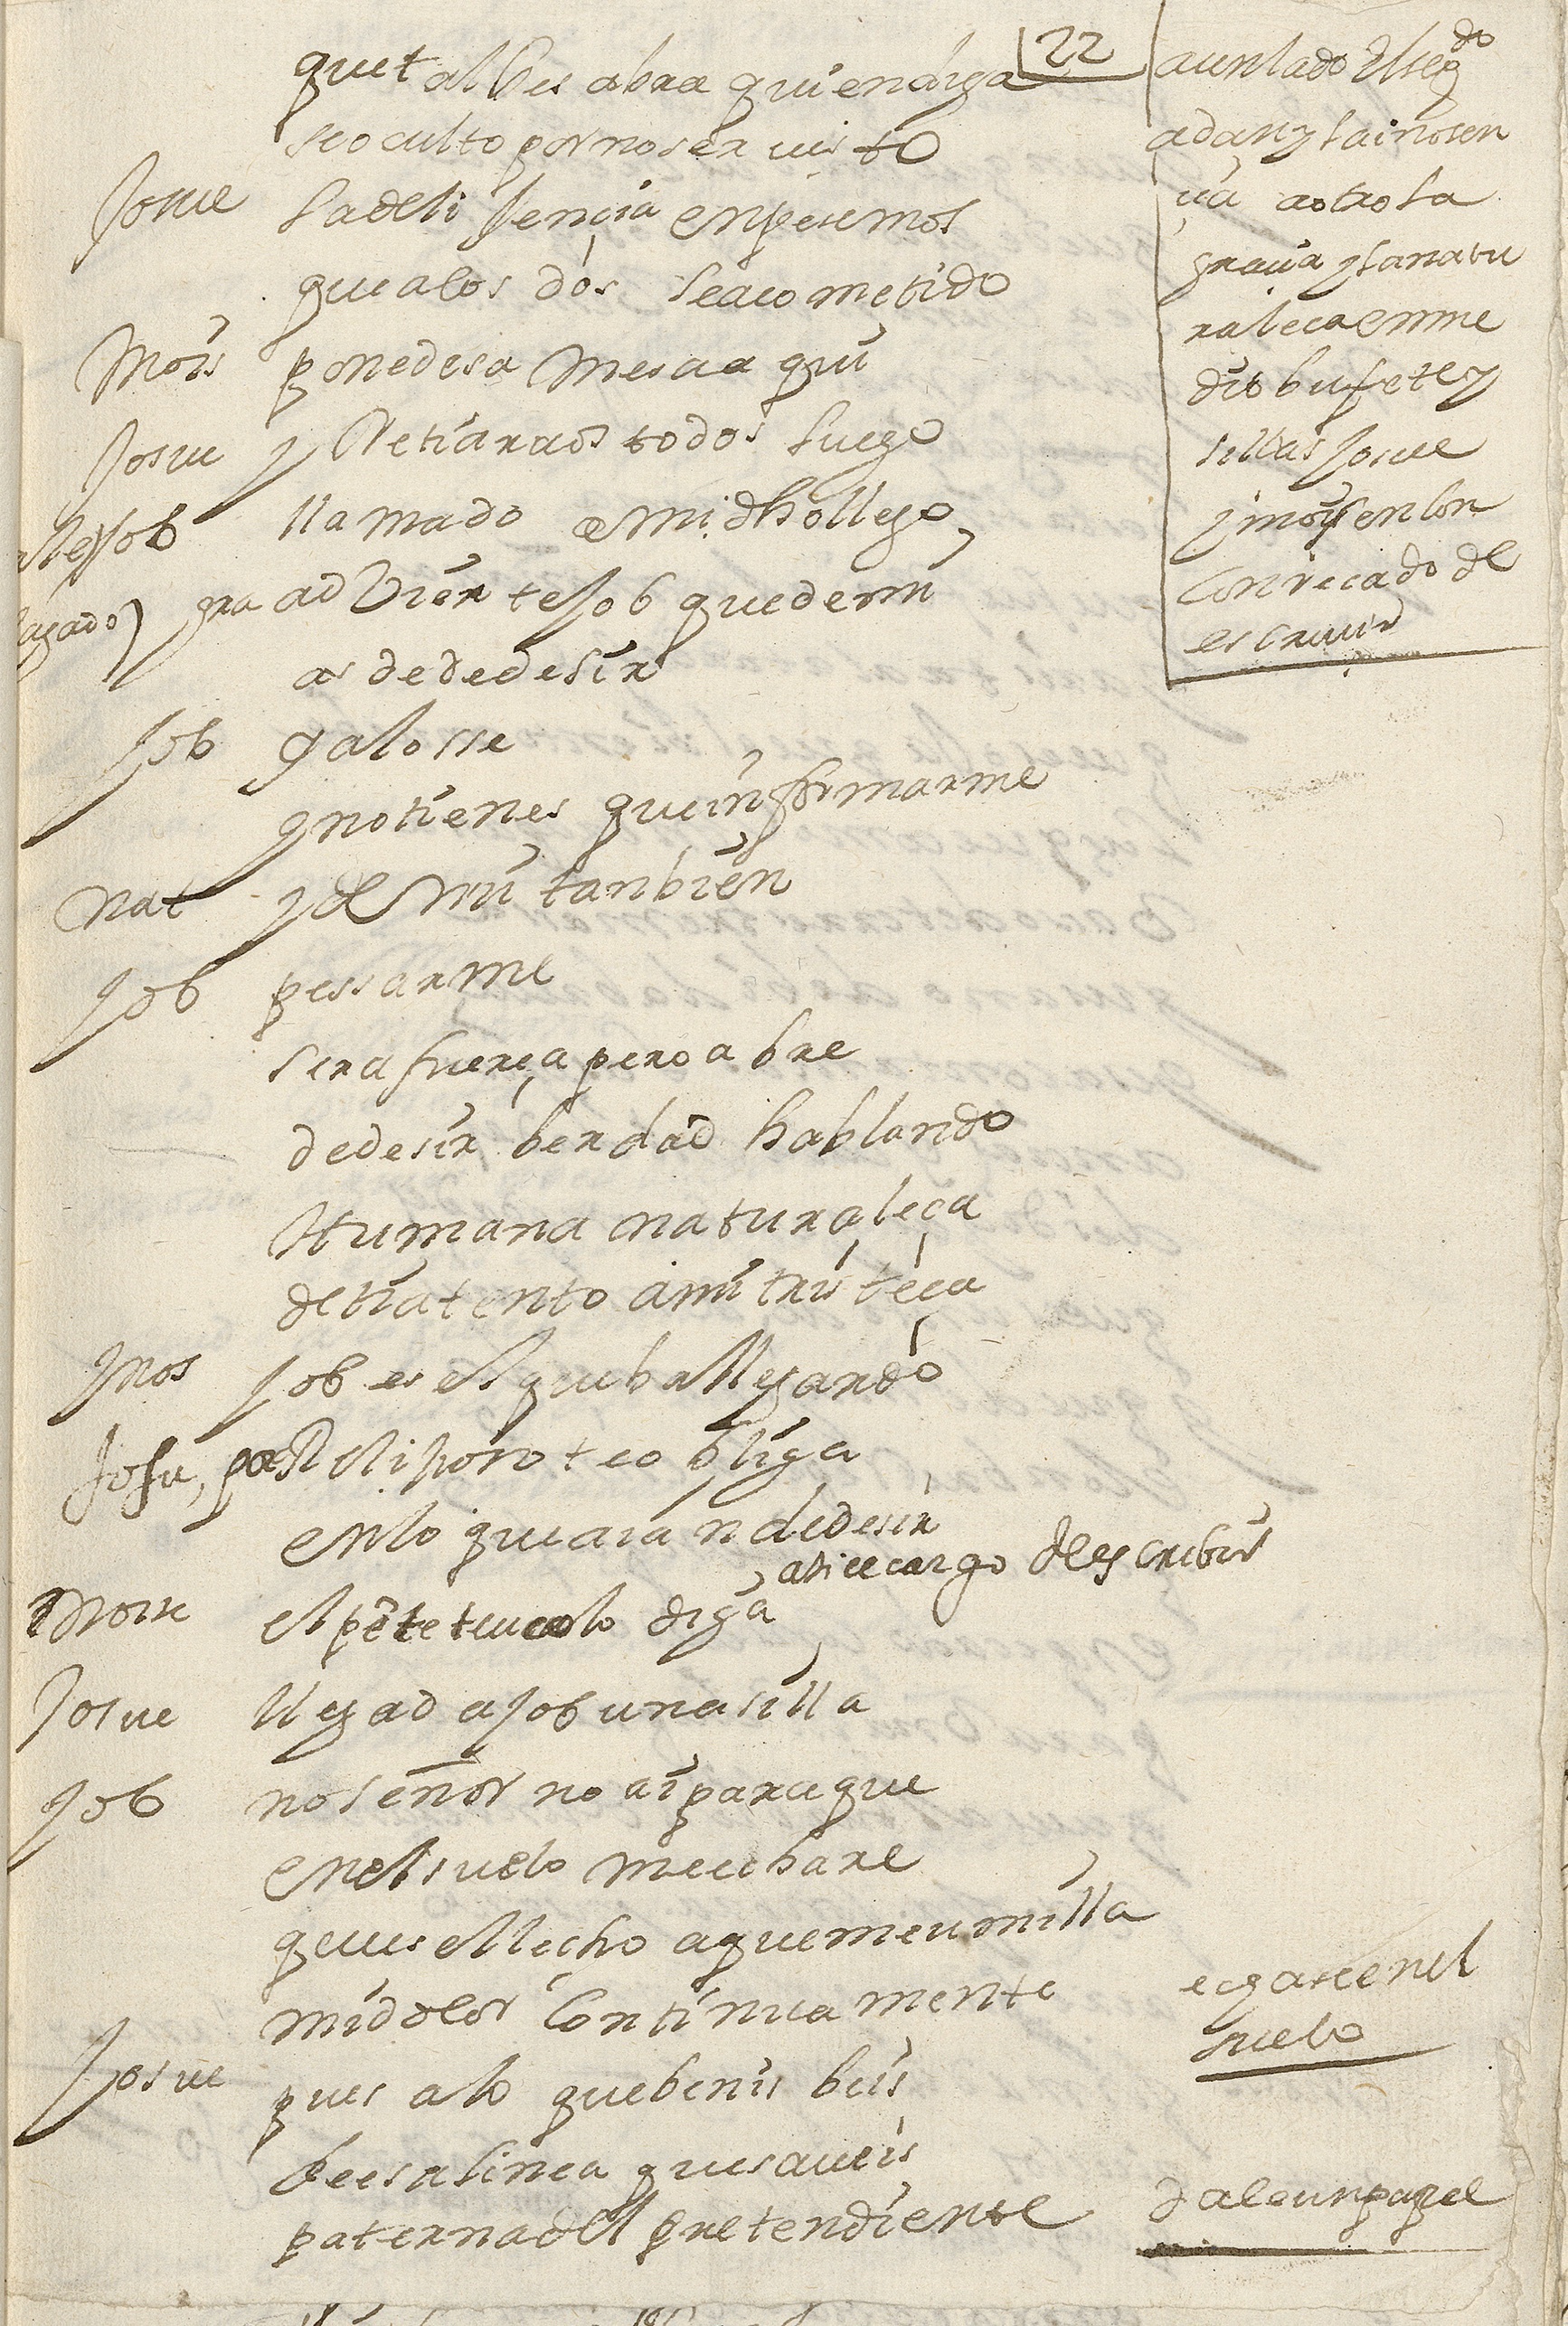 22
que tal bes abra quien diga
se oculto por no ser uisto
Josue la delijençia enpesemos
que a los dos se a cometido
Mois poned esa mesa a qui
Josue y Retiraros todos luego
Job llamado a mi dho llego
gra adbierte Job que de mi
as de de desir
Job ya lo sse
q no tienes que informarme
nat y de mi tanbien
Job pessarme
sera fuerça pero abre
de desir berdad hablando
Humana naturaleça
de ti atento a mi tristeça
mos Job es el que ba llegando
Josu, por Reliposo te obliga
en lo que aian de desir
a ti ce cargo de escribir
mois el lo diga
Josue llegad a Job una silla
Job no señor no ai para que
en el suelo me echare
que es el lecho a que me umilla
mi dolor continuamente
Josue pues a lo que benis beis
de esa linea que saueis
paterna del pretendiente
a un lado el segdo
adan y la inosen
çia a otro la
graçia y la natu
raleça en me
dio bufete y
sillas Josue
y moysen con
con recado de
escriuir
echase en el
suelo
dale un papel